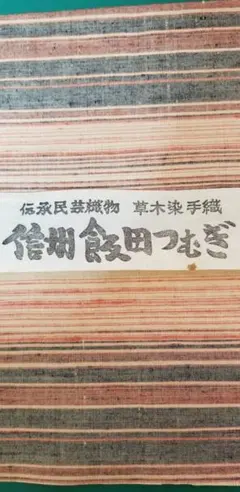 伝承民芸織物 草木染手織
信州飯田つむぎ